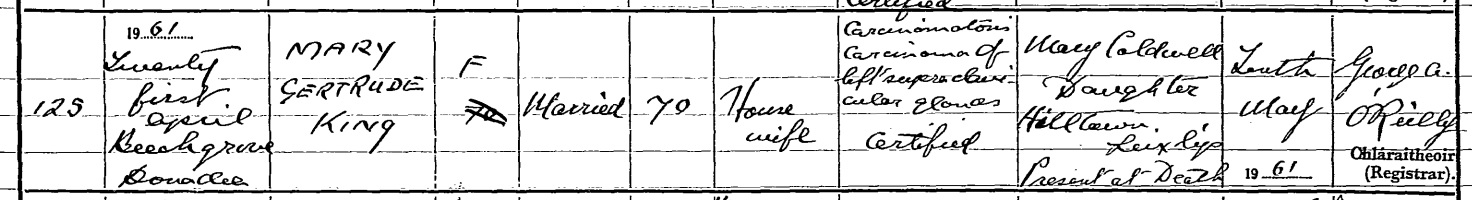 Certified
125
1961
Twenty
first
April
Beechgrove
Donadea
MARY
GERTRUDE
KING
F
Married
70
House
wife
Carcinomatosis
Carcinoma of
left supraclavi-
cular glands
Certified
Mary Coldwell
Daughter
Hilltown.
Leixlip
Present at Death
Tenth
May
1961
George A.
O'Reilly
Chláraitheoir
(Registrar).